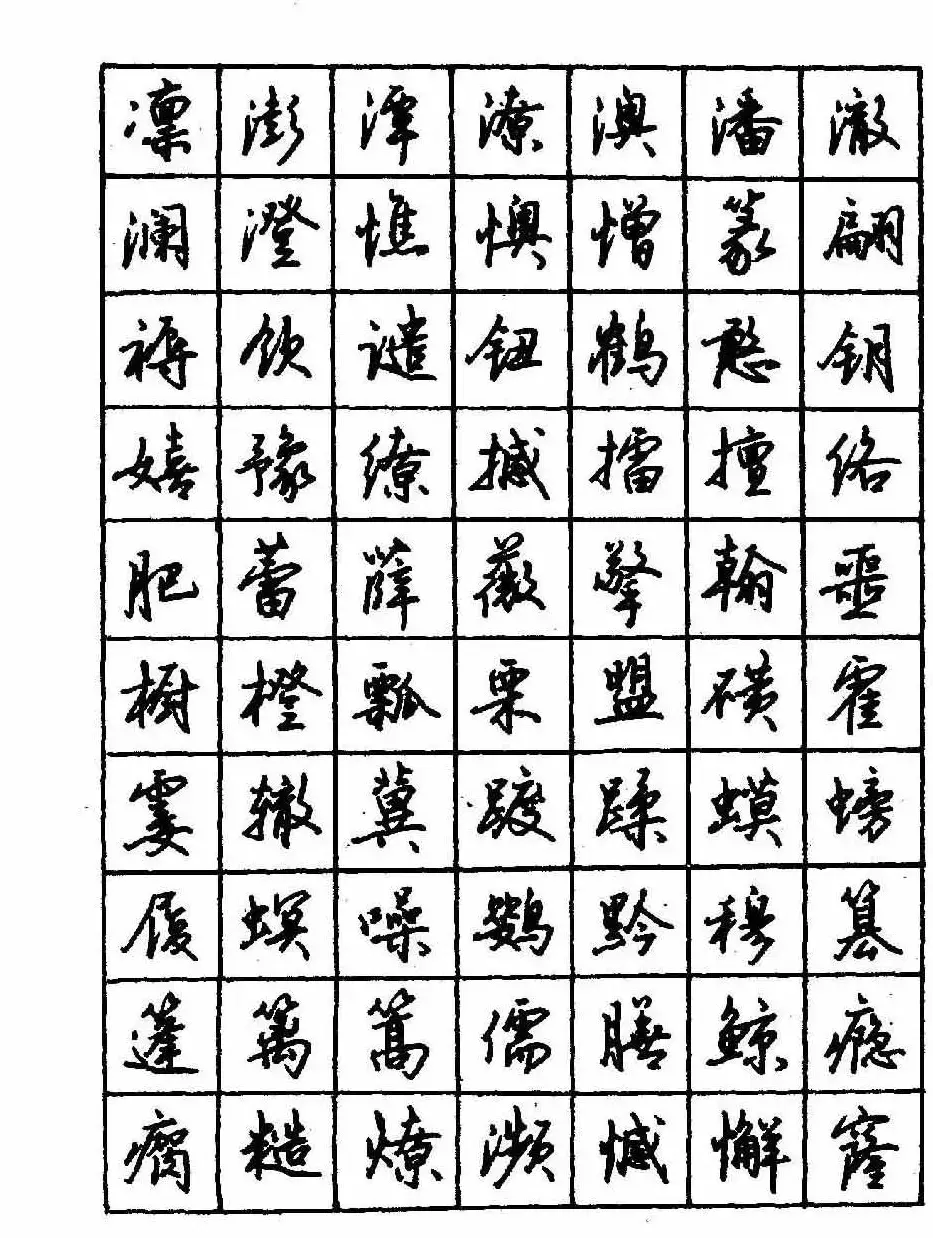 凛澎潭潦澳潘澈
澜澄憔懊憎篆翩
褥谴钮鹤憨钥
嬉豫缭撼擂擅络
肥蕾薛薇擎翰噩
橱橙瓢栗盟磺霍
霎辙冀踱蹂蟆螃
履螟噪鹦黔穆篡
篷篱篙儒膳鲸瘾
瘸糙燎濒憾懈窿